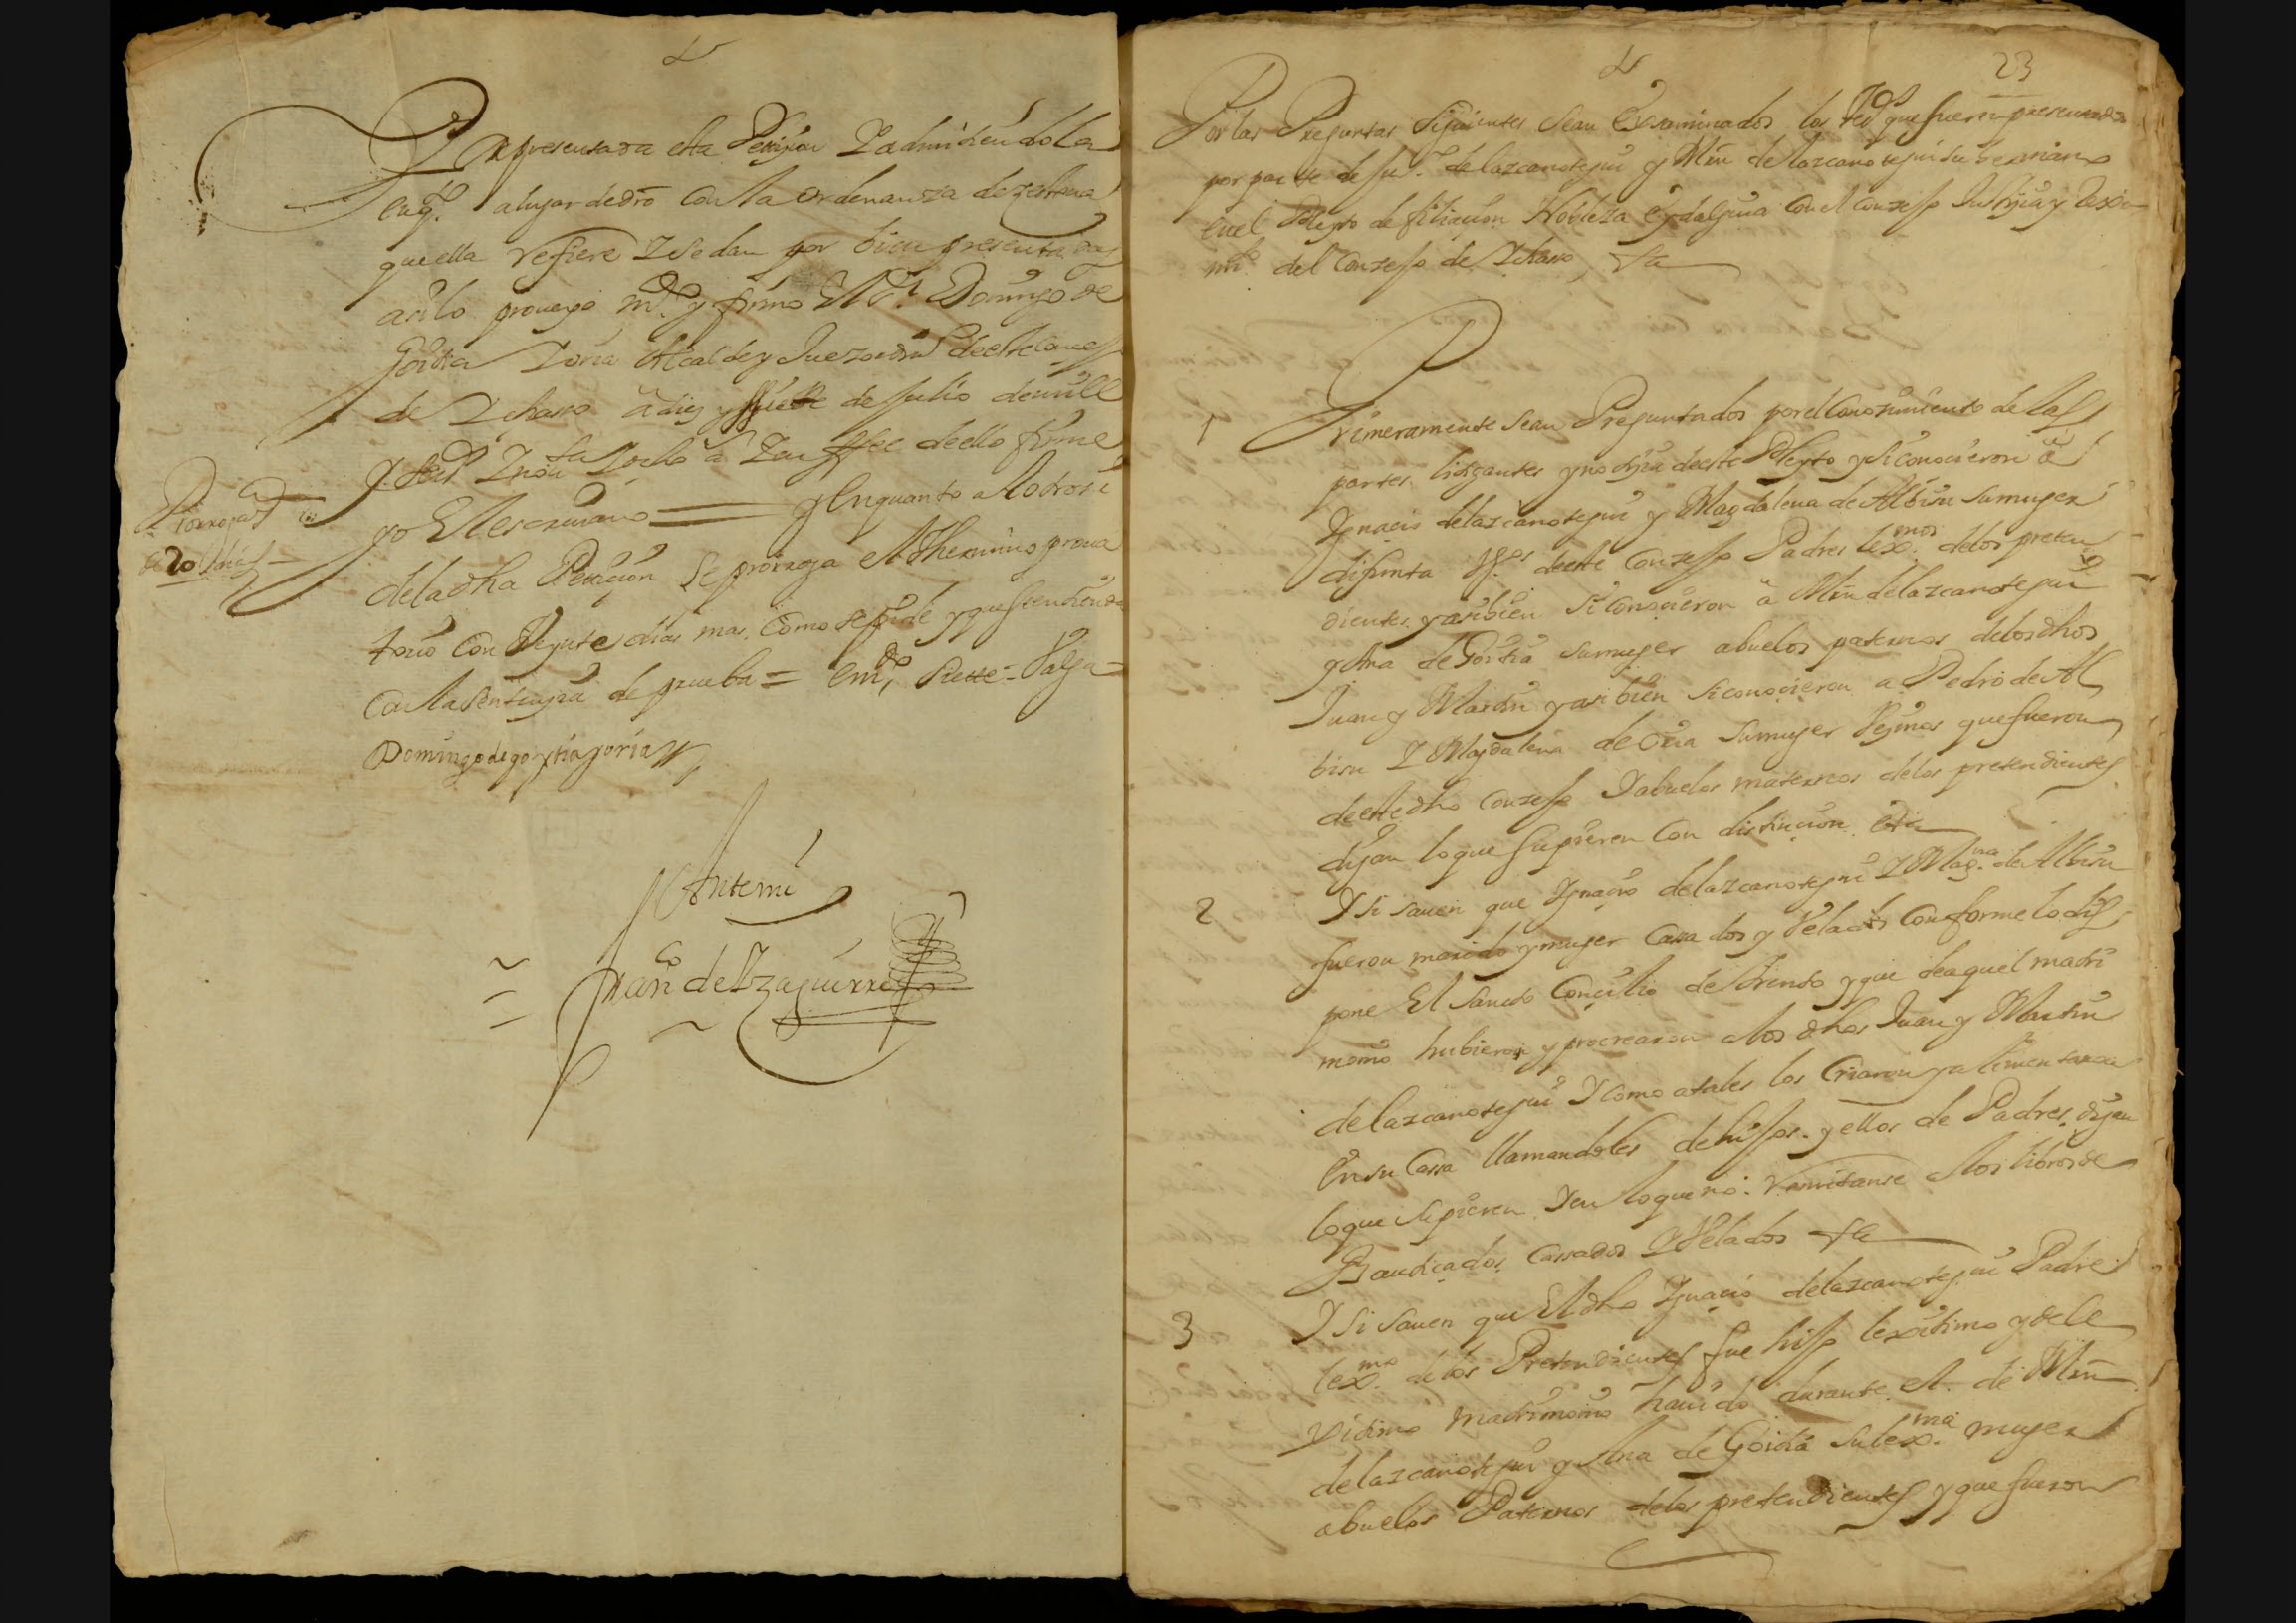 Por presentada esta Petizion Y admitiendola
enq.to a lugar de dro con la ordenanza dezertena
que ella refiere Y se dan por bien presentadas
asi lo proueyo m.do y firmo el s.r Domingo de
Goitia Yoria Alcalde y Juez ordin.o de este Conzejo
de Ychaso a diez y siette de Julio de mill
Y en ffee de ello firme
yo El escriuano = y en quanto al otrosi
Prorrogaz.on
de 20 dias
de la dha Petiçion se proroga el Thermino proua
torio con Veynte dias mas como se pide y que se entienda
con la sentençia de prueba = em.do siette = Valga =
Domingo de goytia yoria
Ante mi
Juan de Yzaguirre
23
Por las Preguntas siguientes sean Examinados los tt.os que fueren presentados
por parte de Ju.o de lazcanotegui y Mrn de lazcanotegui su hermano
en el Pleyto de filiaçion Nobleza e ydalguia con el Conzejo Justiçia y Rexi-
mi.to del Conzejo de Ychaso, &a
1 Primeramente sean Preguntados por el Conosimiento de las
partes litigantes y notiçia de este Pleyto y si conocieron a
Ygnacio de lazcanotegui y Magdalena de Albisu su muger
difunta Vz.os de este Conzejo Padres lex.mos de los preten
dientes, y asi bien si conocieron a Mrn de lazcanotegui
y Ana de Goitia su muger abuelos paternos de los dhos
Juan y Martin y asi bien si conocieron a Pedro de Al
bisu Y Magdalena de Oria su muger Vezinos que fueron
de este dho Conzejo Y abuelos maternos de los pretendientes
digan lo que supieren Con distinçion &a
2 Y si sauen que Ygnaçio de lazcanotegui Y Mag.na de Albisu
fueron marido y muger Casados y Velados Conforme lo dis
pone El Sancto Conçilio de Trento y que de aquel matri
monio hubieron y procrearon a los dhos Juan y Martin
de lazcanotegui Y como a tales los Criaron y alimentaron
en su Cassa llamandoles de hijos. y ellos de Padres, digan
lo que supieren Y en lo que no. remitanse a los libros de
Bautiçados, Cassados Y Velados &a
3 Y si sauen que El dho Ygnacio de lazcanotegui Padre
lex.mo de los Pretendientes fue hijo lexitimo y de le
xitimo matrimonio hauido durante el de Mrn
de lazcanotegui y Ana de Goitia su lex.ma muger
abuelos Paternos de los pretendientes y que fueron